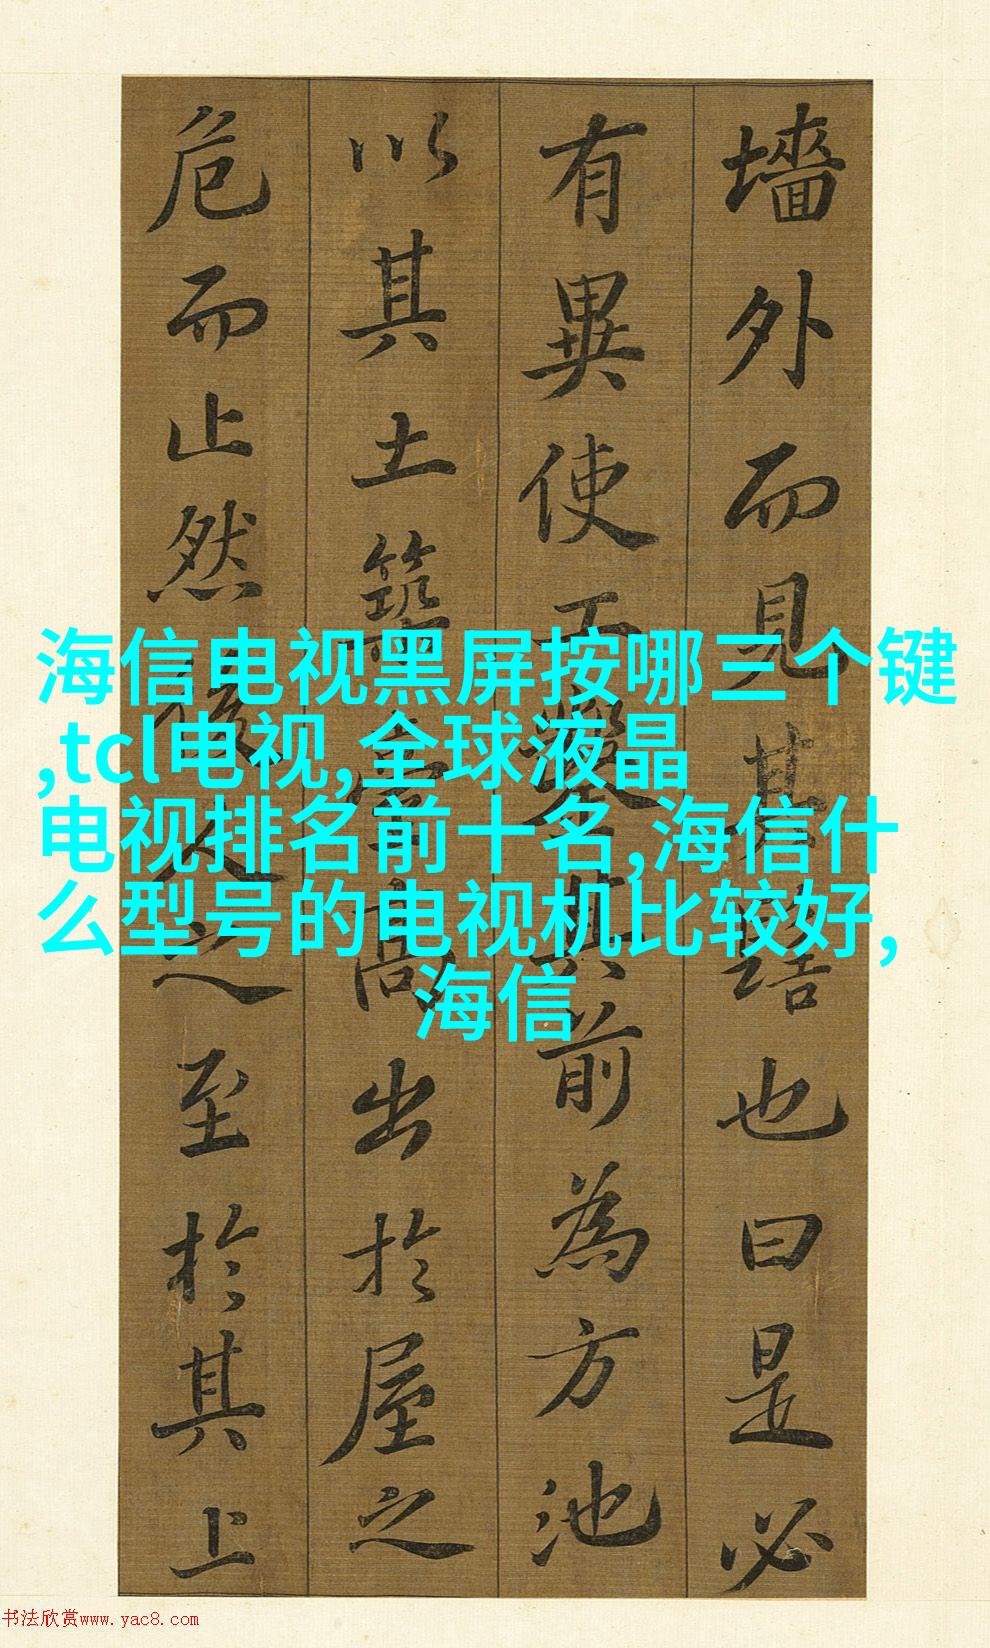 墻外而見其髻也曰是必
有異使工鑿其前為方池
以其土築臺高出於屋之
危而止然後人之至於其上
海信电视黑屏按哪三个键
,tcl电视,全球液晶
电视排名前十名,海信什
么型号的电视机比较好,
海信
书法欣赏www.yac8.com